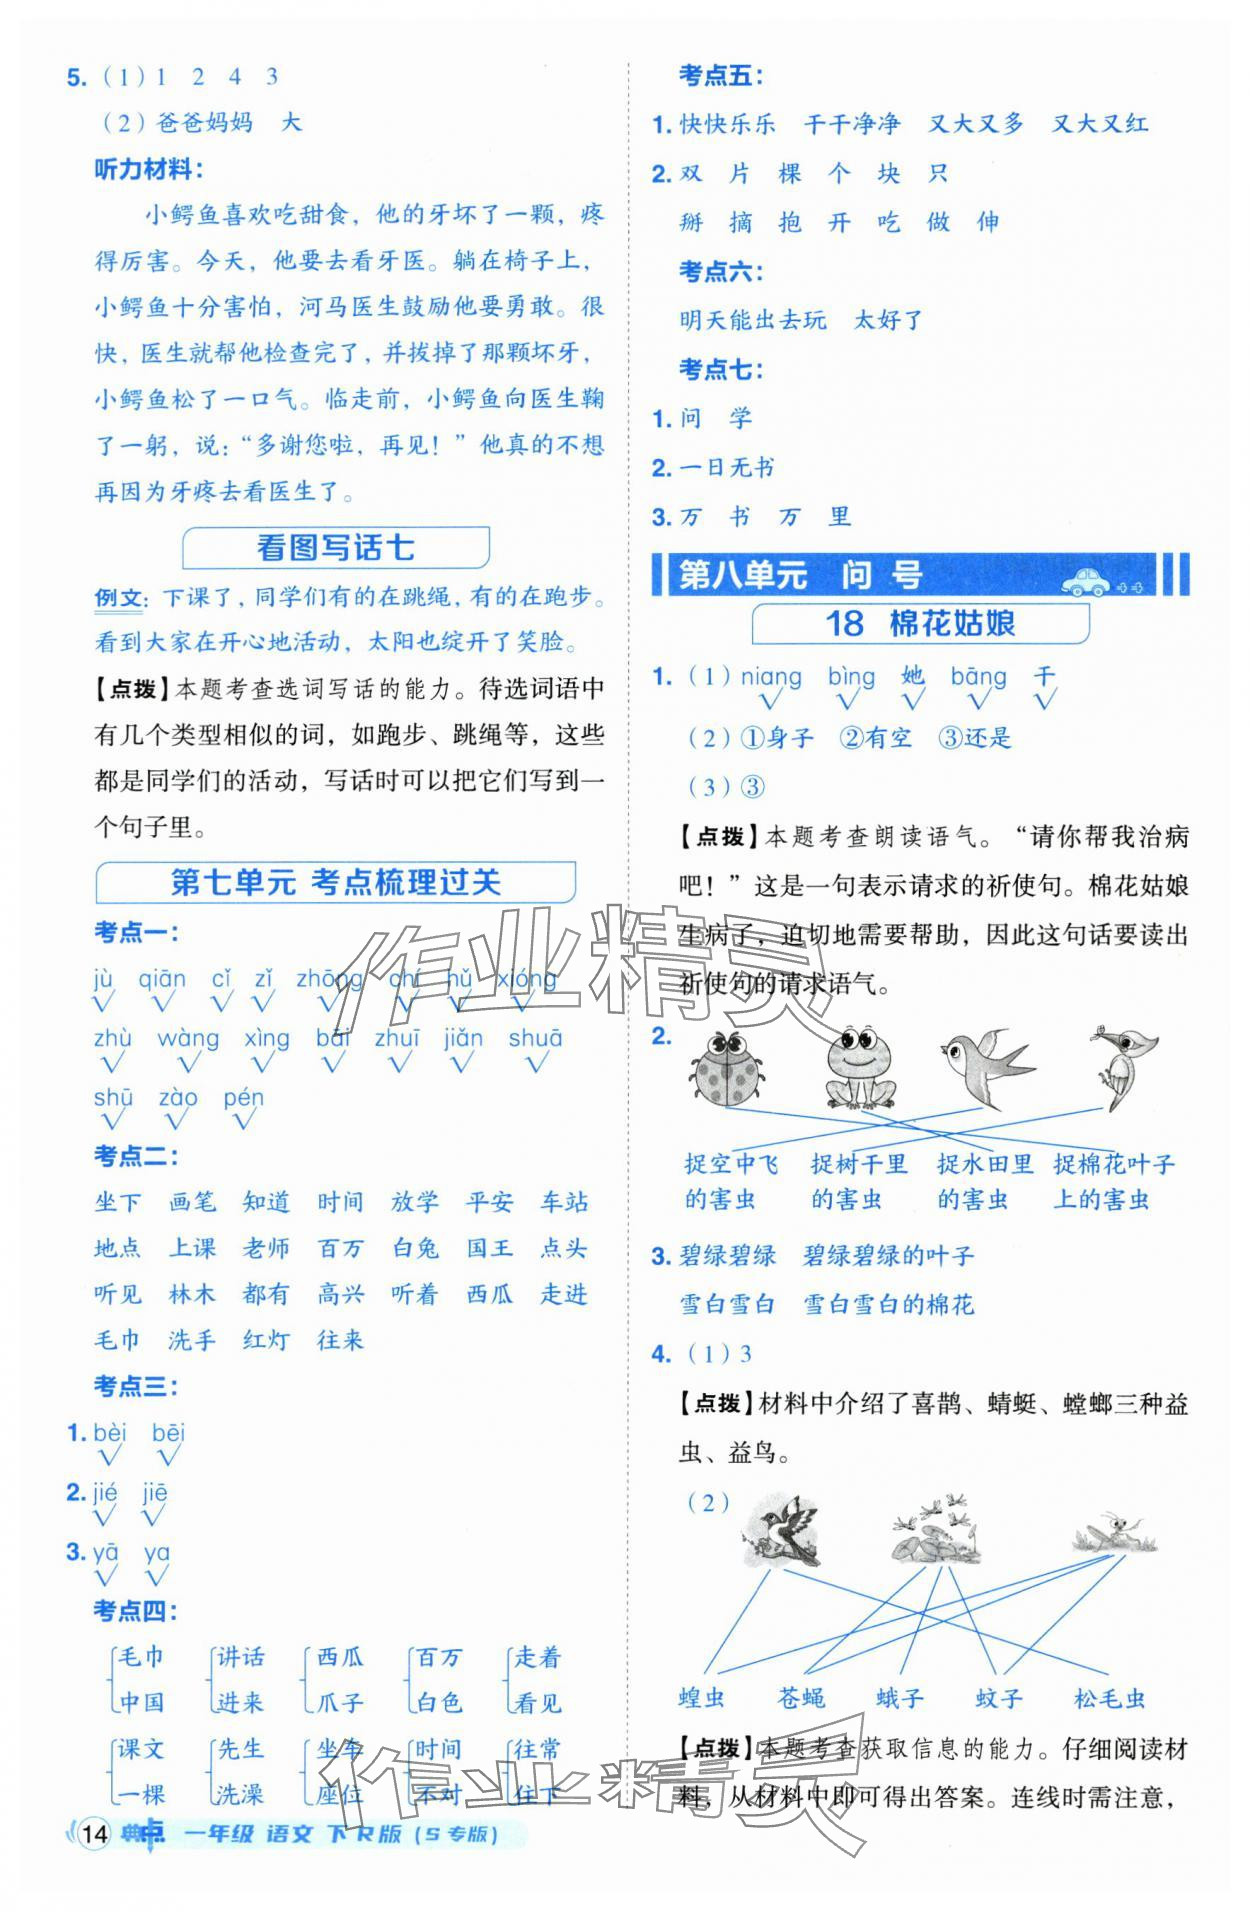 5. (1)1 2 4 3
(2)爸爸妈妈 大
听力材料：
小鳄鱼喜欢吃甜食，他的牙坏了一颗，疼
得厉害。今天，他要去看牙医。躺在椅子上，
小鳄鱼十分害怕，河马医生鼓励他要勇敢。很
快，医生就帮他检查完了，并拔掉了那颗坏牙，
小鳄鱼松了一口气。临走前，小鳄鱼向医生鞠
了一躬，说：“多谢您啦，再见！”他真的不想
再因为牙疼去看医生了。
看图写话七
例文：下课了，同学们有的在跳绳，有的在跑步。
看到大家在开心地活动，太阳也绽开了笑脸。
【点拨】本题考查选词写话的能力。待选词语中
有几个类型相似的词，如跑步、跳绳等，这些
都是同学们的活动，写话时可以把它们写到一
个句子里。
第七单元 考点梳理过关
考点一：
jù qiān cǐ zǐ zhōng chí hǔ xióng
√ √ √ √ √ √ √ √
zhù wàng xìng bāi zhuī jiǎn shuā
√ √ √ √ √ √ √
shū zào pén
√ √ √
考点二：
坐下 画笔 知道 时间 放学 平安 车站
地点 上课 老师 百万 白兔 国王 点头
听见 林木 都有 高兴 听着 西瓜 走进
毛巾 洗手 红灯 往来
考点三：
1. bèi bēi
√ √
2. jié jiē
√ √
3. yā ya
√ √
考点四：
毛巾 讲话 西瓜 百万 走着
中国 进来 爪子 白色 看见
课文 先生 坐车 时间 往常
一棵 洗澡 座位 不对 住下
14 典中点 一年级 语文 下 R版（S专版）
考点五：
1. 快快乐乐 干干净净 又大又多 又大又红
2. 双 片 棵 个 块 只
掰 摘 抱 开 吃 做 伸
考点六：
明天能出去玩 太好了
考点七：
1. 问 学
2. 一日无书
3. 万 书 万 里
第八单元 问号
18 棉花姑娘
1. (1) niang bìng 她 bāng 干
√ √ √ √ √
(2)①身子 ②有空 ③还是
(3)③
【点拨】本题考查朗读语气。“请你帮我治病
吧！”这是一句表示请求的祈使句。棉花姑娘
生病了，迫切地需要帮助，因此这句话要读出
祈使句的请求语气。
2.
捉空中飞 捉树干里 捉水田里 捉棉花叶子
的害虫 的害虫 的害虫 上的害虫
3. 碧绿碧绿 碧绿碧绿的叶子
雪白雪白 雪白雪白的棉花
4. (1)3
【点拨】材料中介绍了喜鹊、蜻蜓、螳螂三种益
虫、益鸟。
(2)
蝗虫 苍蝇 蛾子 蚊子 松毛虫
【点拨】本题考查获取信息的能力。仔细阅读材
料，从材料中即可得出答案。连线时需注意，
作业精灵
作业精灵